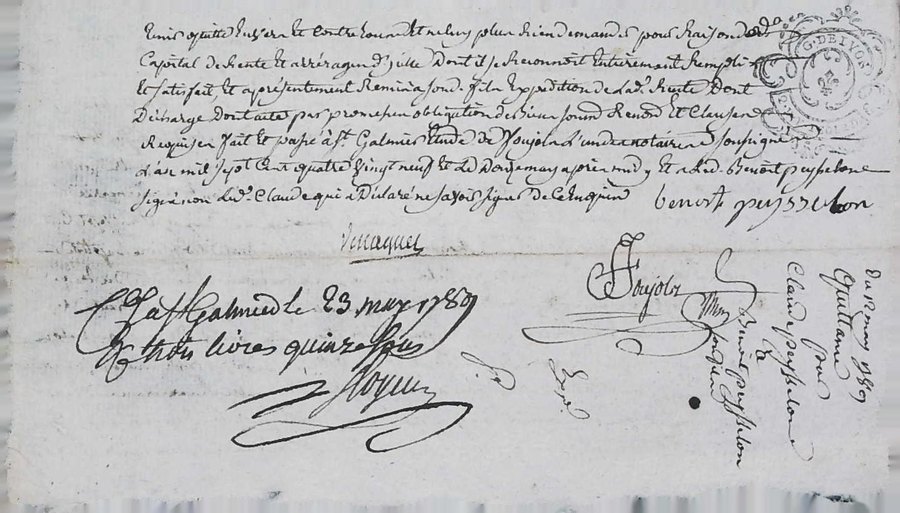 quitte envers et contre tous et ne luy plus rien demander pour raison du
Capital de Rente et arrérages d'icelle Dont il se Reconnoit Entierement Rempli
Et satisfait Et a presentement Remis a son d. fils Expedition de lad. Rente Dont
Décharge Dont acte par promesses obligations de biens soumd Renon Et Clauses
Requises fait et passé à St. Galmier Etude de Poujol L'un des notaires Soussigné
L'an mil sept Cent quatre vingt neuf et Le Douze may après midy Et a led. Benoit peysselone
signé non led. Claude qui a Déclaré ne savoir signer de ce Enquis
benoit peysselon
G. DE LYON
Poujol
Cé a St Galmier le 23 may 1789
trois livres quinze sous
du 12 may 1789
Quittance
pour
Claude peysselone
a
Benoit peysselon